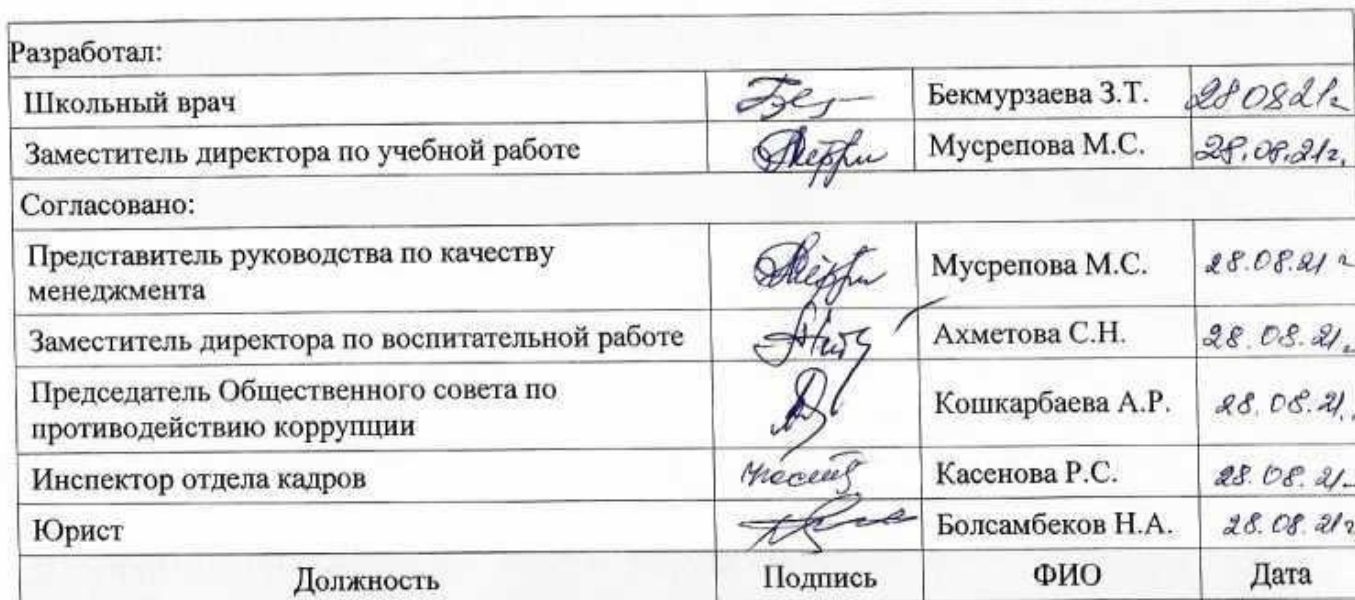 Разработал:
Школьный врач Бекмурзаева З.Т. 28 08 21г
Заместитель директора по учебной работе Мусрепова М.С. 28.08.21г.
Согласовано:
Представитель руководства по качеству
менеджмента Мусрепова М.С. 28.08.21 г
Заместитель директора по воспитательной работе Ахметова С.Н. 28.08.21г
Председатель Общественного совета по
противодействию коррупции Кошкарбаева А.Р. 28.08.21.
Инспектор отдела кадров Касенова Р.С. 28.08.21г
Юрист Болсамбеков Н.А. 28.08.21г
Должность Подпись ФИО Дата